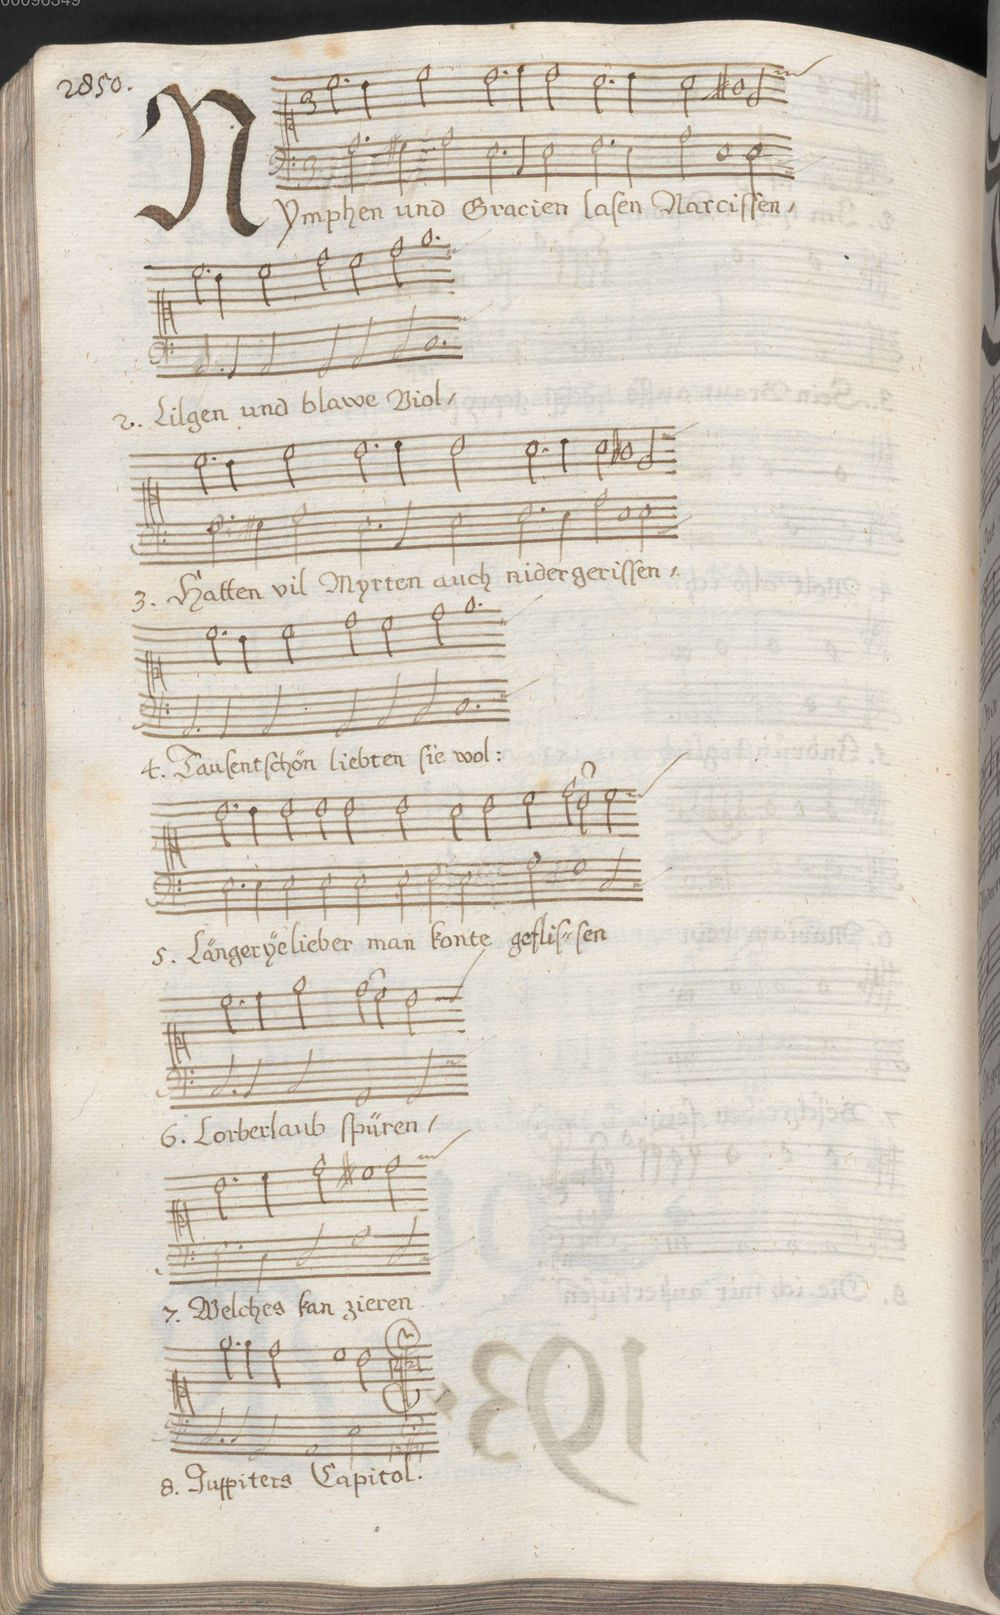 00098349
2850.
Nymphen und Gracien lasen Narcissen,
2. Lilgen und blawe Viol,
3. Hatten vil Myrten auch nidergerissen,
4. Tausentschön liebten sie wol:
5. Längerÿelieber man konte geflis-sen
6. Lorberlaub spüren,
7. Welches kan zieren
8. Juppiters Capitol.
193.